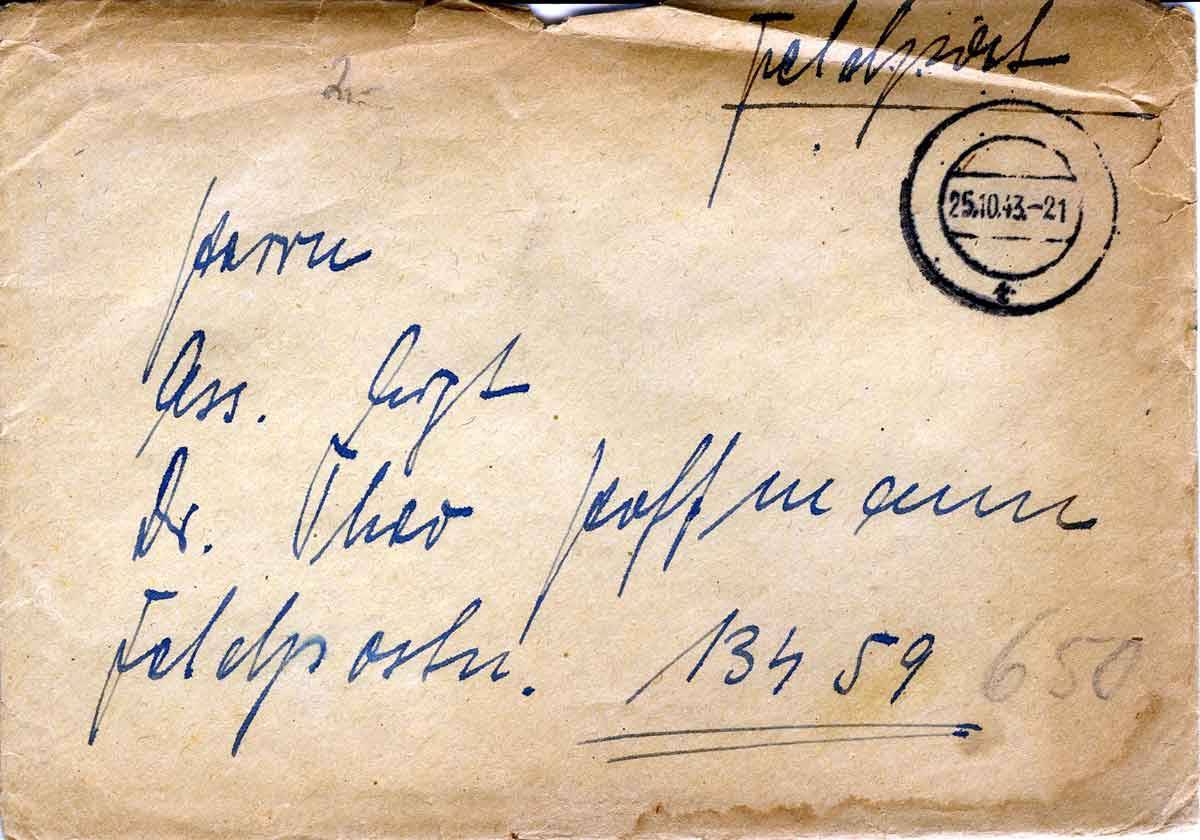 Feldpost
25.10.43.-21
Herrn
Ass. Arzt
Dr. Theo Hoffmann
Feldpostnr. 13459 650